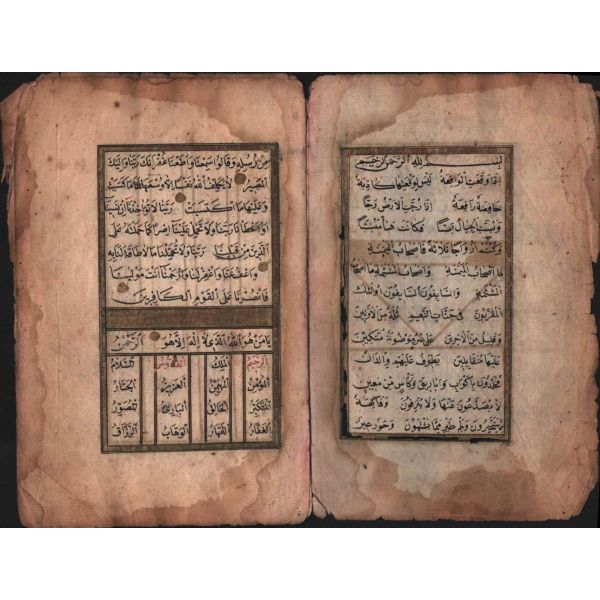 بسم الله الرحمن الرحيم
اذا وقعت الواقعة ليس لوقعتها كاذبة
خافضة رافعة اذا رجت الارض رجا
وبست الجبال بسا فكانت هباء منبثا
وكنتم ازواجا ثلاثة فاصحاب الميمنة
ما اصحاب الميمنة واصحاب المشئمة ما اصحاب
المشئمة والسابقون السابقون اولئك
المقربون في جنات النعيم ثلة من الاولين
وقليل من الاخرين على سرر موضونة متكئين
عليها متقابلين يطوف عليهم ولدان
مخلدون باكواب واباريق وكأس من معين
لا يصدعون عنها ولا ينزفون وفاكهة
مما يتخيرون ولحم طير مما يشتهون وحور عين
من رسله وقالوا سمعنا واطعنا غفرانك ربنا واليك
المصير لا يكلف الله نفسا الا وسعها لها ما كسبت
وعليها ما اكتسبت ربنا لا تؤاخذنا ان نسينا
او اخطأنا ربنا ولا تحمل علينا اصرا كما حملته على
الذين من قبلنا ربنا ولا تحملنا ما لا طاقة لنا به
واعف عنا واغفر لنا وارحمنا انت مولينا
فانصرنا على القوم الكافرين
يا من هو الله الذي لا اله الا هو الرحمن
الرحيم الملك القدوس السلام
المؤمن المهيمن العزيز الجبار
المتكبر الخالق البارئ المصور
الغفار القهار الوهاب الرزاق